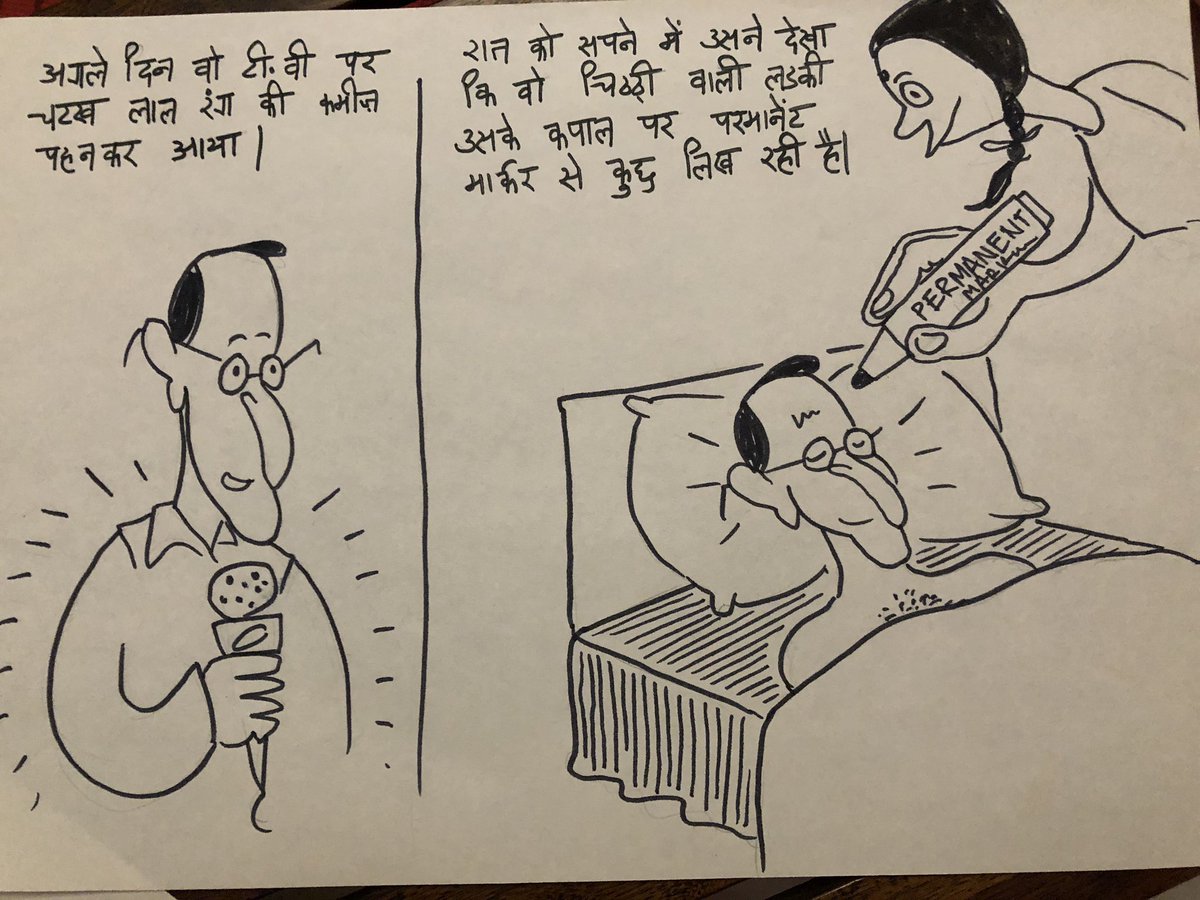 अगले दिन वो टी.वी पर
चटख लाल रंग की कमीज़
पहनकर आया।
रात को सपने में उसने देखा
कि वो चिठ्ठी वाली लडकी
उसके कपाल पर परमानेंट
मार्कर से कुछ लिख रही है।
PERMANENT
MARKER